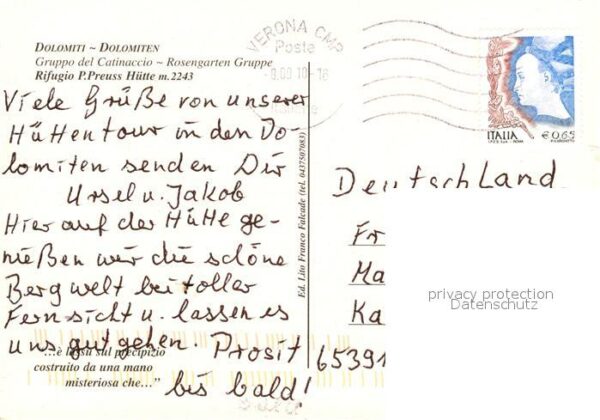 DOLOMITI ~ DOLOMITEN
Gruppo del Catinaccio ~ Rosengarten Gruppe
Rifugio P.Preuss Hütte m.2243
VERONA CMP
Poste
ITALIA
€0,65
Viele Grüße von unserer
Hüttentour in den Do-
lomiten senden Dir
Ursel u. Jakob
Hier auf der Hütte ge-
nießen wir die schöne
Bergwelt bei toller
Fernsicht u. lassen es
uns gut gehen. Prosit
bis bald!
...è lassù sul precipizio
costruito da una mano
misteriosa che..."
Ed. Lito Franco Falcade (tel. 0437507083)
Deutschland
Fr
Ma
Ka
65391
privacy protection
Datenschutz